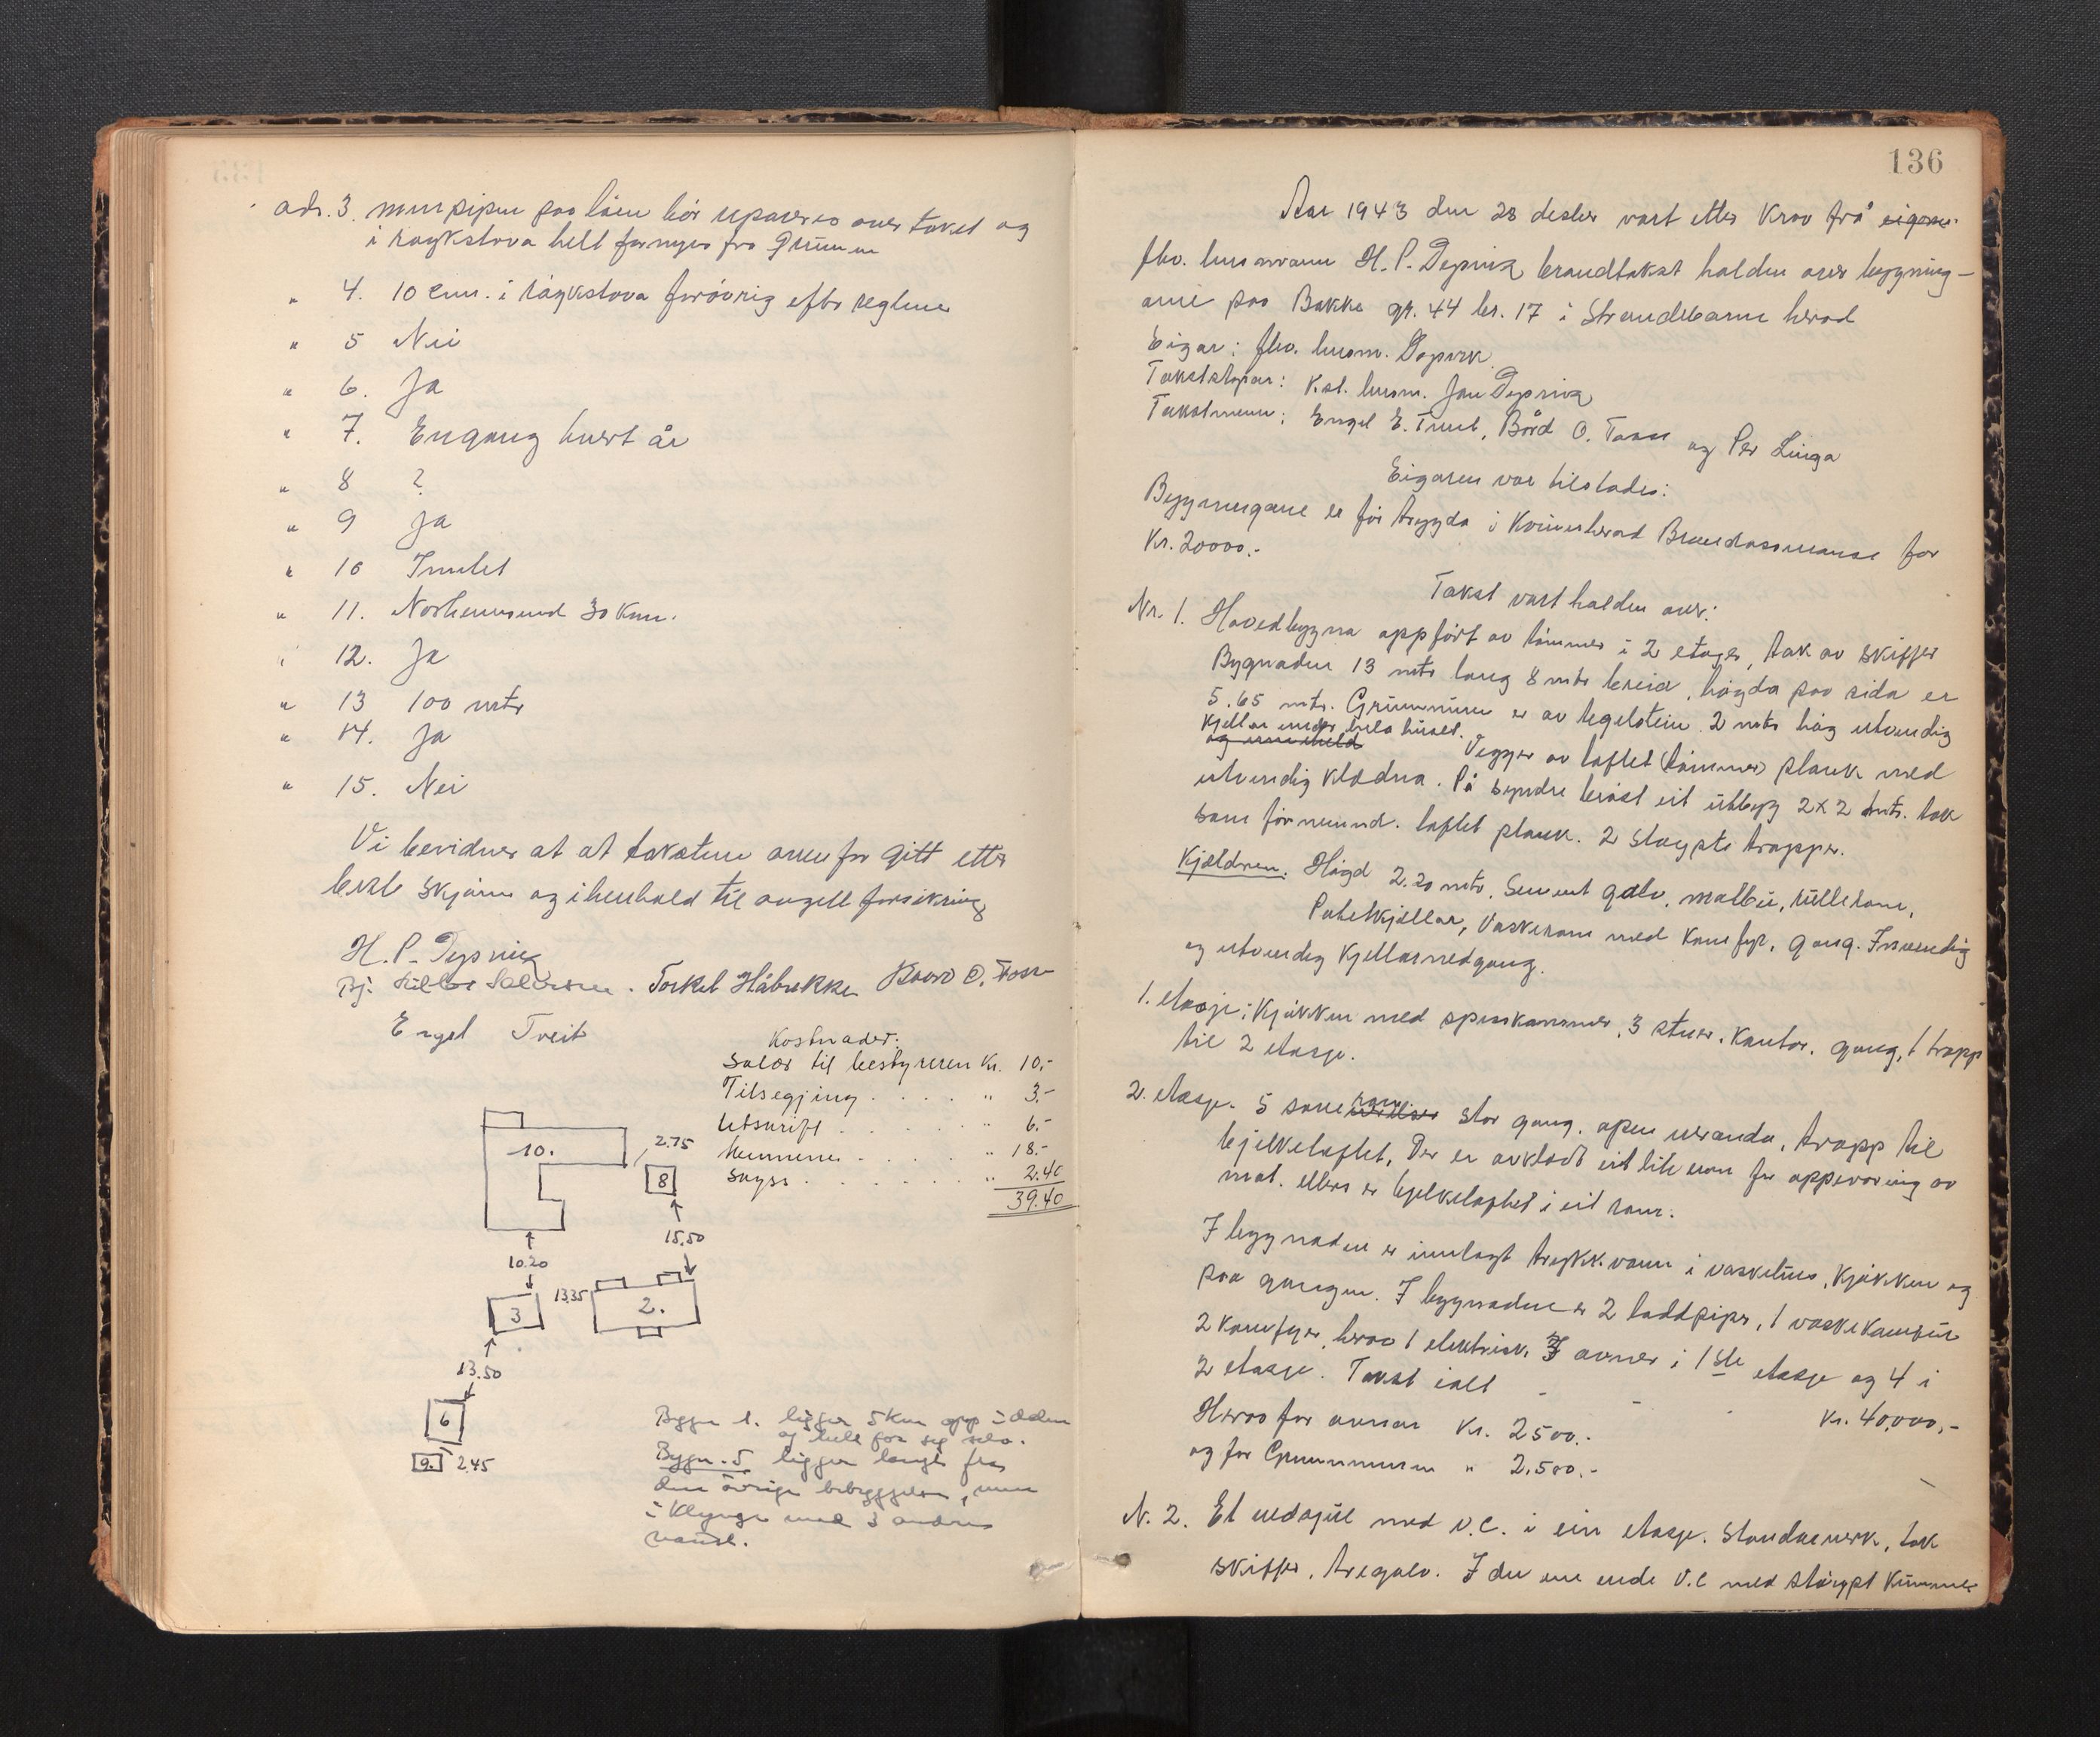 adr. 3. murpipen paa låen bör repareres over taket og
i röykstova helt fornyes fra Grunnen
" 4. 10 cm. i röykstova forövrig efter reglene
" 5 Nei
" 6. Ja
" 7. Engang hvert år
" 8 ?
" 9 Ja
" 10 Innlet
" 11. Norheimsund 30 km.
" 12. Ja
" 13 100 mtr
" 14. Ja
" 15. Nei
Vi bevidner at at takstene ovenfor Gitt etter
beste skjönn og i henhold til avgitt forsikring
H. P. Tepsvig
Torkel Håbrekke Baard O. Tosse
Engel Tveit
Kostnader:
Salær til bestyreren Kr. 10.-
Tilsegjing . . . . " 3.-
Utskrift . . . . " 6.-
Mennene . . . . " 18.-
Skyss . . . . " 2.40
39.40
10.
2.75
8
15.50
10.20
3
13.35
2.
13.50
6
9. 2.45
Bygn 1. ligger 5 km opp i dalen
og helt for seg selv.
Bygn. 5 ligger langt fra
den övrige bebyggelsen, men
i Klynge med 3 andre
136
Aar 1943 den 28 desber vart etter Krav frå eigaren
fhv. lensmann H. P. Tepsvig brandtakst halden over bygning-
ane paa Bakke gr. 44 br. 17 i Strandebarm herad
Eigar: fhv. lensm. Tepsvik
Takststyrar: K.st. lensm. Jon Tepsvig
Takstmenn: Engel E. Tveit, Bård O. Tosse og Per Linga
Eigaren var tilstades:
Bygningane er för trygda i Kvinnherad Brandassuranse for
Kr. 20000.-
Takst vart halden over:
Nr. 1. Hovedbygna oppfört av tömmer i 2 etager, tak av skiffer
Bygnaden 13 mtr lang 8 mtr breid, högda paa sida er
5.65 mtr. Grunnmuren er av tegelstein 2 mtr hög utvendig
Kjellar under hela huset.
Vegger av laftet (tömmer) plank med
utvendig Klædna. På syndre bröst eit utbygg 2x2 mtr. tak
som förnemnd. laftet plank. 2 stöypte trapper.
Kjeldren. Högd 2.20 mtr. Sement golv, matbu, rullerom,
Potetkjellar, Vaskerom med Komfyr, gang. Innvendig
og utvendig Kjellarnedgang.
1. etasje: Kjökken med spiskammer, 3 stuer, Kontor, gang, 1 trapp
til 2 etasje.
2. etasje. 5 soverom, stor gang, open veranda, trapp til
bjelkeloftet. Der er avkledt eit lite rom for oppevaring av
mat. ellers er bjelkeloftet i eit rom.
I bygnaden er innlagt trykk.vann i vaskehus, Kjökken og
paa gangen. I bygnaden er 2 loddpiper, 1 vaskekomfur
2 Komfyrer, herav 1 elektrisk. 3 ovner i 1ste etasje og 4 i
2 etasje. Takst ialt Kr. 40,000,-
Herav for ovnar Kr. 2500.-
og for Grunnmuren " 2.500.-
N. 2. Et vedaskjul med v.c. i ein etasje. Standarverk, tak
skiffer, tregolv. I den ene ende v.c med stöypt Kummer